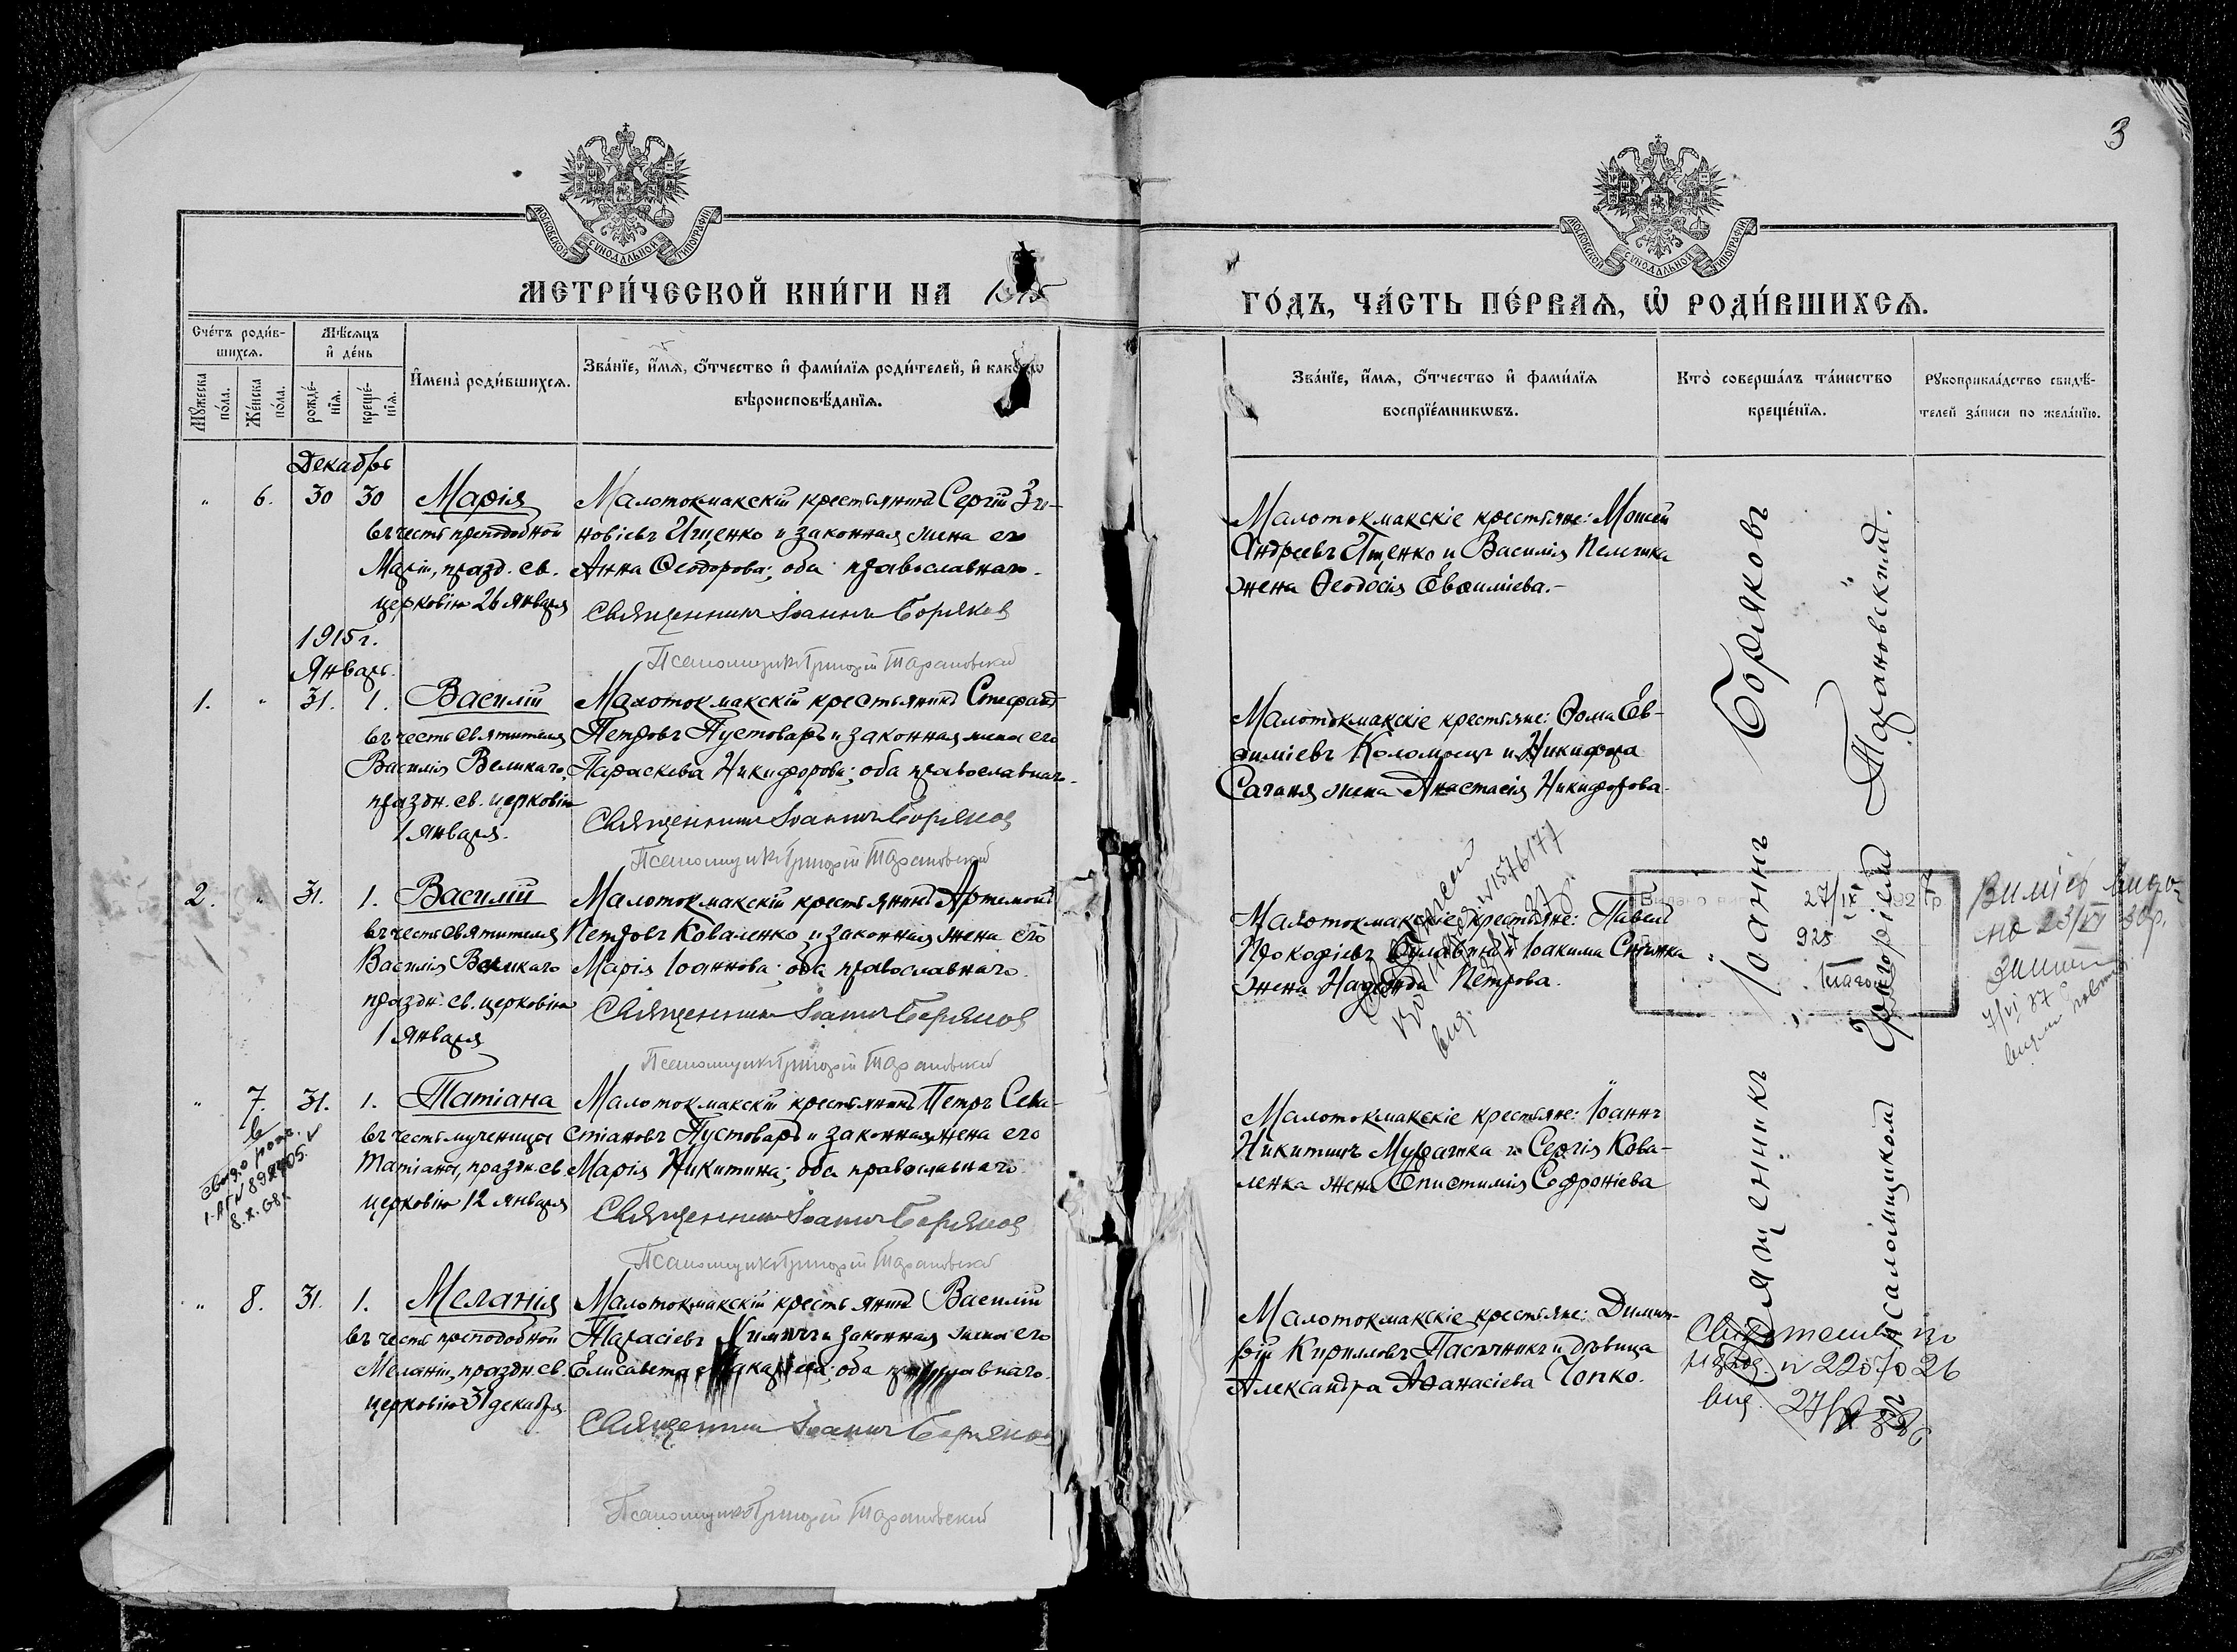 3
МОСКОВСКОЙ СѴНОДАЛЬНОЙ ТИПОГРАФІИ
МОСКОВСКОЙ СѴНОДАЛЬНОЙ ТИПОГРАФІИ
МЕТРИ́ЧЕСКОЙ КНИ́ГИ НА 1915
ГО́ДЪ, ЧА́СТЬ ПЕ́РВАѦ, Ѡ҆ РОДИ́ВШИХСѦ.
Сче́тъ роди́в-
шихсѧ.
Мѣ́сѧцъ
и҆ де́нь
Мꙋ́жеска
по́ла.
Же́нска
по́ла.
рожде́-
нїѧ.
креще́-
нїѧ.
И҆мена̀ роди́вшихсѧ.
Зва́нїе, и҆́мѧ, ѻ҆́тчество и҆ фами́лїѧ роди́телей, и҆ како́гѡ
вѣроисповѣ́данїѧ.
Зва́нїе, и҆́мѧ, ѻ҆́тчество и҆ фами́лїѧ
воспрїе́мникѡвъ.
Кто̀ соверша́лъ та́инство
креще́нїѧ.
Рꙋкоприкла́дство свидѣ́-
телей за́писи по жела́нїю.
Декабрь
" 6. 30 30 Марія
въ честь преподобной
Маріи, празд. св.
церковію 26 января
Малотокмакскій крестьянинъ Сергій Зи-
новіевъ Ищенко и законная жена его
Анна Ѳеодорова; оба православнаго.
Священникъ Іоаннъ Боряковъ
Псаломщикъ Григорій Тарановскій
Малотокмакскіе крестьяне: Моисей
Андреевъ Ищенко и Василія Пелечика
жена Ѳеодосія Евѳиміева.-
1915 г.
Январь.
1. " 31. 1. Василій
въ честь Святителя
Василія Великаго,
праздн. св. церковію
1 января.
Малотокмакскій крестьянинъ Стефанъ
Петровъ Пустоваръ и законная жена его
Параскева Никифорова; оба православнаго.
Священникъ Іоаннъ Боряковъ
Псаломщикъ Григорій Тарановскій
Малотокмакскіе крестьяне: Ѳома Ев-
ѳиміевъ Коломоецъ и Никифора
Саганя жена Анастасія Никифорова.
2. " 31. 1. Василій
въ честь Святителя
Василія Великаго
праздн. св. церковію
1 января
Малотокмакскій крестьянинъ Артемонъ
Петровъ Коваленко и законная жена его
Марія Іоаннова; оба православнаго.
Священникъ Іоаннъ Боряковъ
Псаломщикъ Григорій Тарановскій
Малотокмакскіе крестьяне: Павелъ
жена Надежда Петрова.
27/IX 1927 р
925
" 7. 31. 1. Татіана
въ честь мученицы
Татіаны, праздн. св.
церковію 12 января
8.X.68
Малотокмакскій крестьянинъ Петръ Сева-
стіановъ Пустоваръ и законная жена его
Марія Никитина; оба православнаго.
Священникъ Іоаннъ Боряковъ
Псаломщикъ Григорій Тарановскій
Малотокмакскіе крестьяне: Іоаннъ
Никитинъ Мурачка и Сергія Кова-
ленка жена Епистимія Софроніева
" 8. 31. 1. Меланія
въ честь преподобной
Меланіи, праздн. св.
церковію 31 декабря
Малотокмакскій крестьянинъ Василій
Тарасіевъ и законная жена его
Елисавета Макаріева; оба православнаго.
Священникъ Іоаннъ Боряковъ
Псаломщикъ Григорій Тарановскій
Малотокмакскіе крестьяне: Димит-
рій Кирилловъ Пасечникъ и дѣвица
Александра Аѳанасіева Чопко.
Священникъ Іоаннъ Боряковъ
Псаломщикомъ Григорій Тарановскимъ.